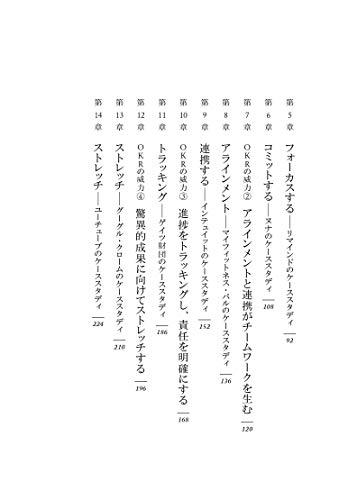 第5章 フォーカスする――リマインドのケーススタディ 92
第6章 コミットする――ヌナのケーススタディ 108
第7章 OKRの威力② アラインメントと連携がチームワークを生む 120
第8章 アラインメント――マイフィットネス・パルのケーススタディ 136
第9章 連携する――インテュイットのケーススタディ 152
第10章 OKRの威力③ 進捗をトラッキングし、責任を明確にする 168
第11章 トラッキング――ゲイツ財団のケーススタディ 186
第12章 OKRの威力④ 驚異的成果に向けてストレッチする 196
第13章 ストレッチ――グーグル・クロームのケーススタディ 210
第14章 ストレッチ――ユーチューブのケーススタディ 224